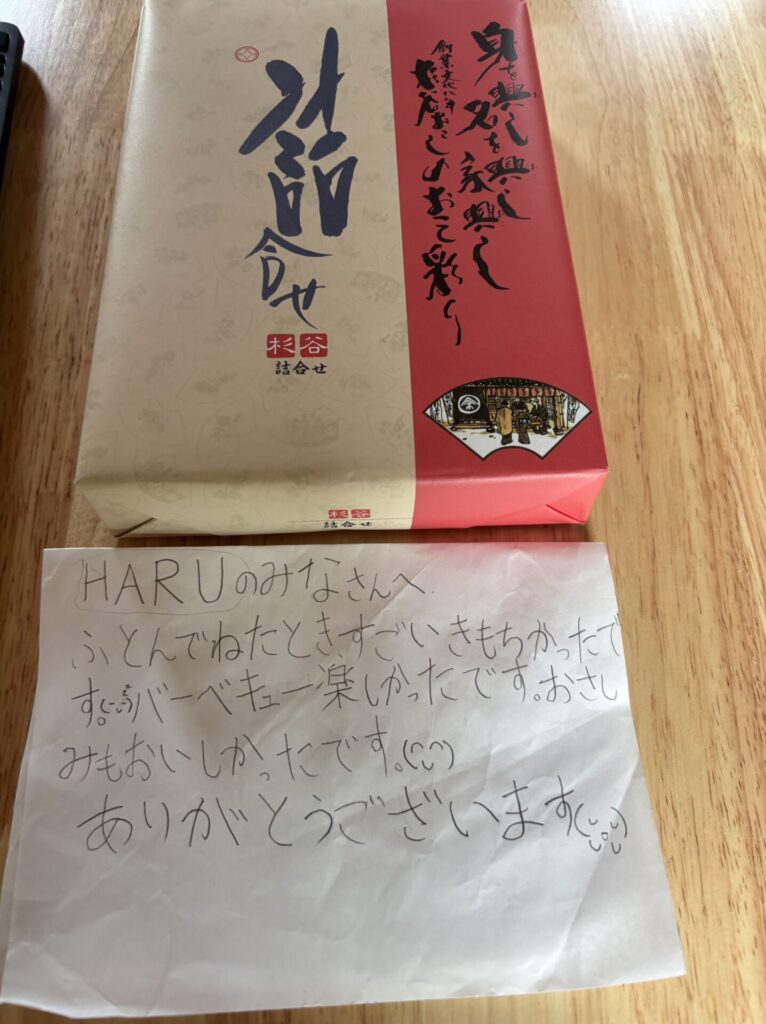 身を興し
名を興し
家興し
詰
合せ
杉谷
詰合せ
杉谷
詰合せ
HARUのみなさんへ
ふとんでねたとき、すごいきもちかったで
す。バーベキュー楽しかったです。おさし
みもおいしかったです。
ありがとうございます